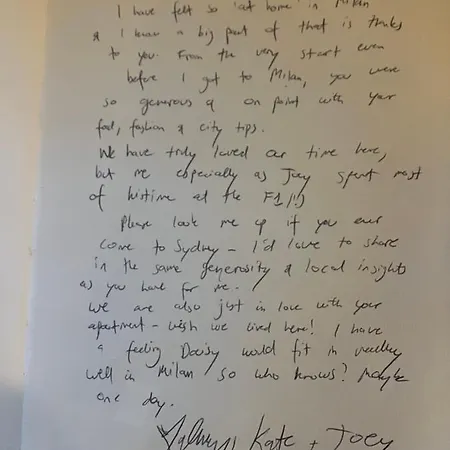 I have felt so 'at home' in Milan
& I know a big part of that is thanks
to you. From the very start even
before I got to Milan, you were
so generous & on point with your
food, fashion & city tips.
We have truly loved our time here,
but me especially as Joey spent most
of histime at the F1/!)
Please look me up if you ever
come to Sydney - I'd love to share
in the same generosity & local insights
as you have for me.
We are also just in love with your
apartment - wish we lived here! I have
a feeling Daisy would fit in
well in Milan so who knows? Maybe
one day.
Kate + Joey